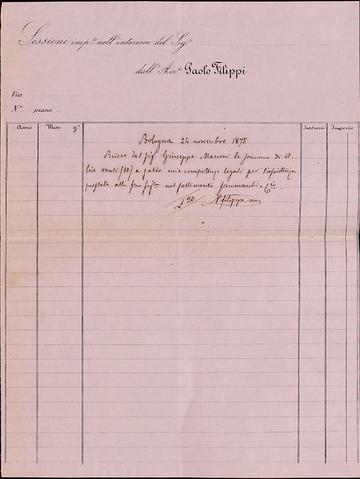 Sessione imp.ta nell'interesse del Sig.r
dall' Avv.to Paolo Filippi
Via
N.o piano
Anno Mese g.o Sessioni Importo
Bologna 24 novembre 1873
Ricevo dal Sig. Giuseppe Marconi la somma di it.
lire venti (20) a saldo mie competenze legali per l'assistenza
prestata alla sua figlia nel fallimento &
£ 20 P Filippi